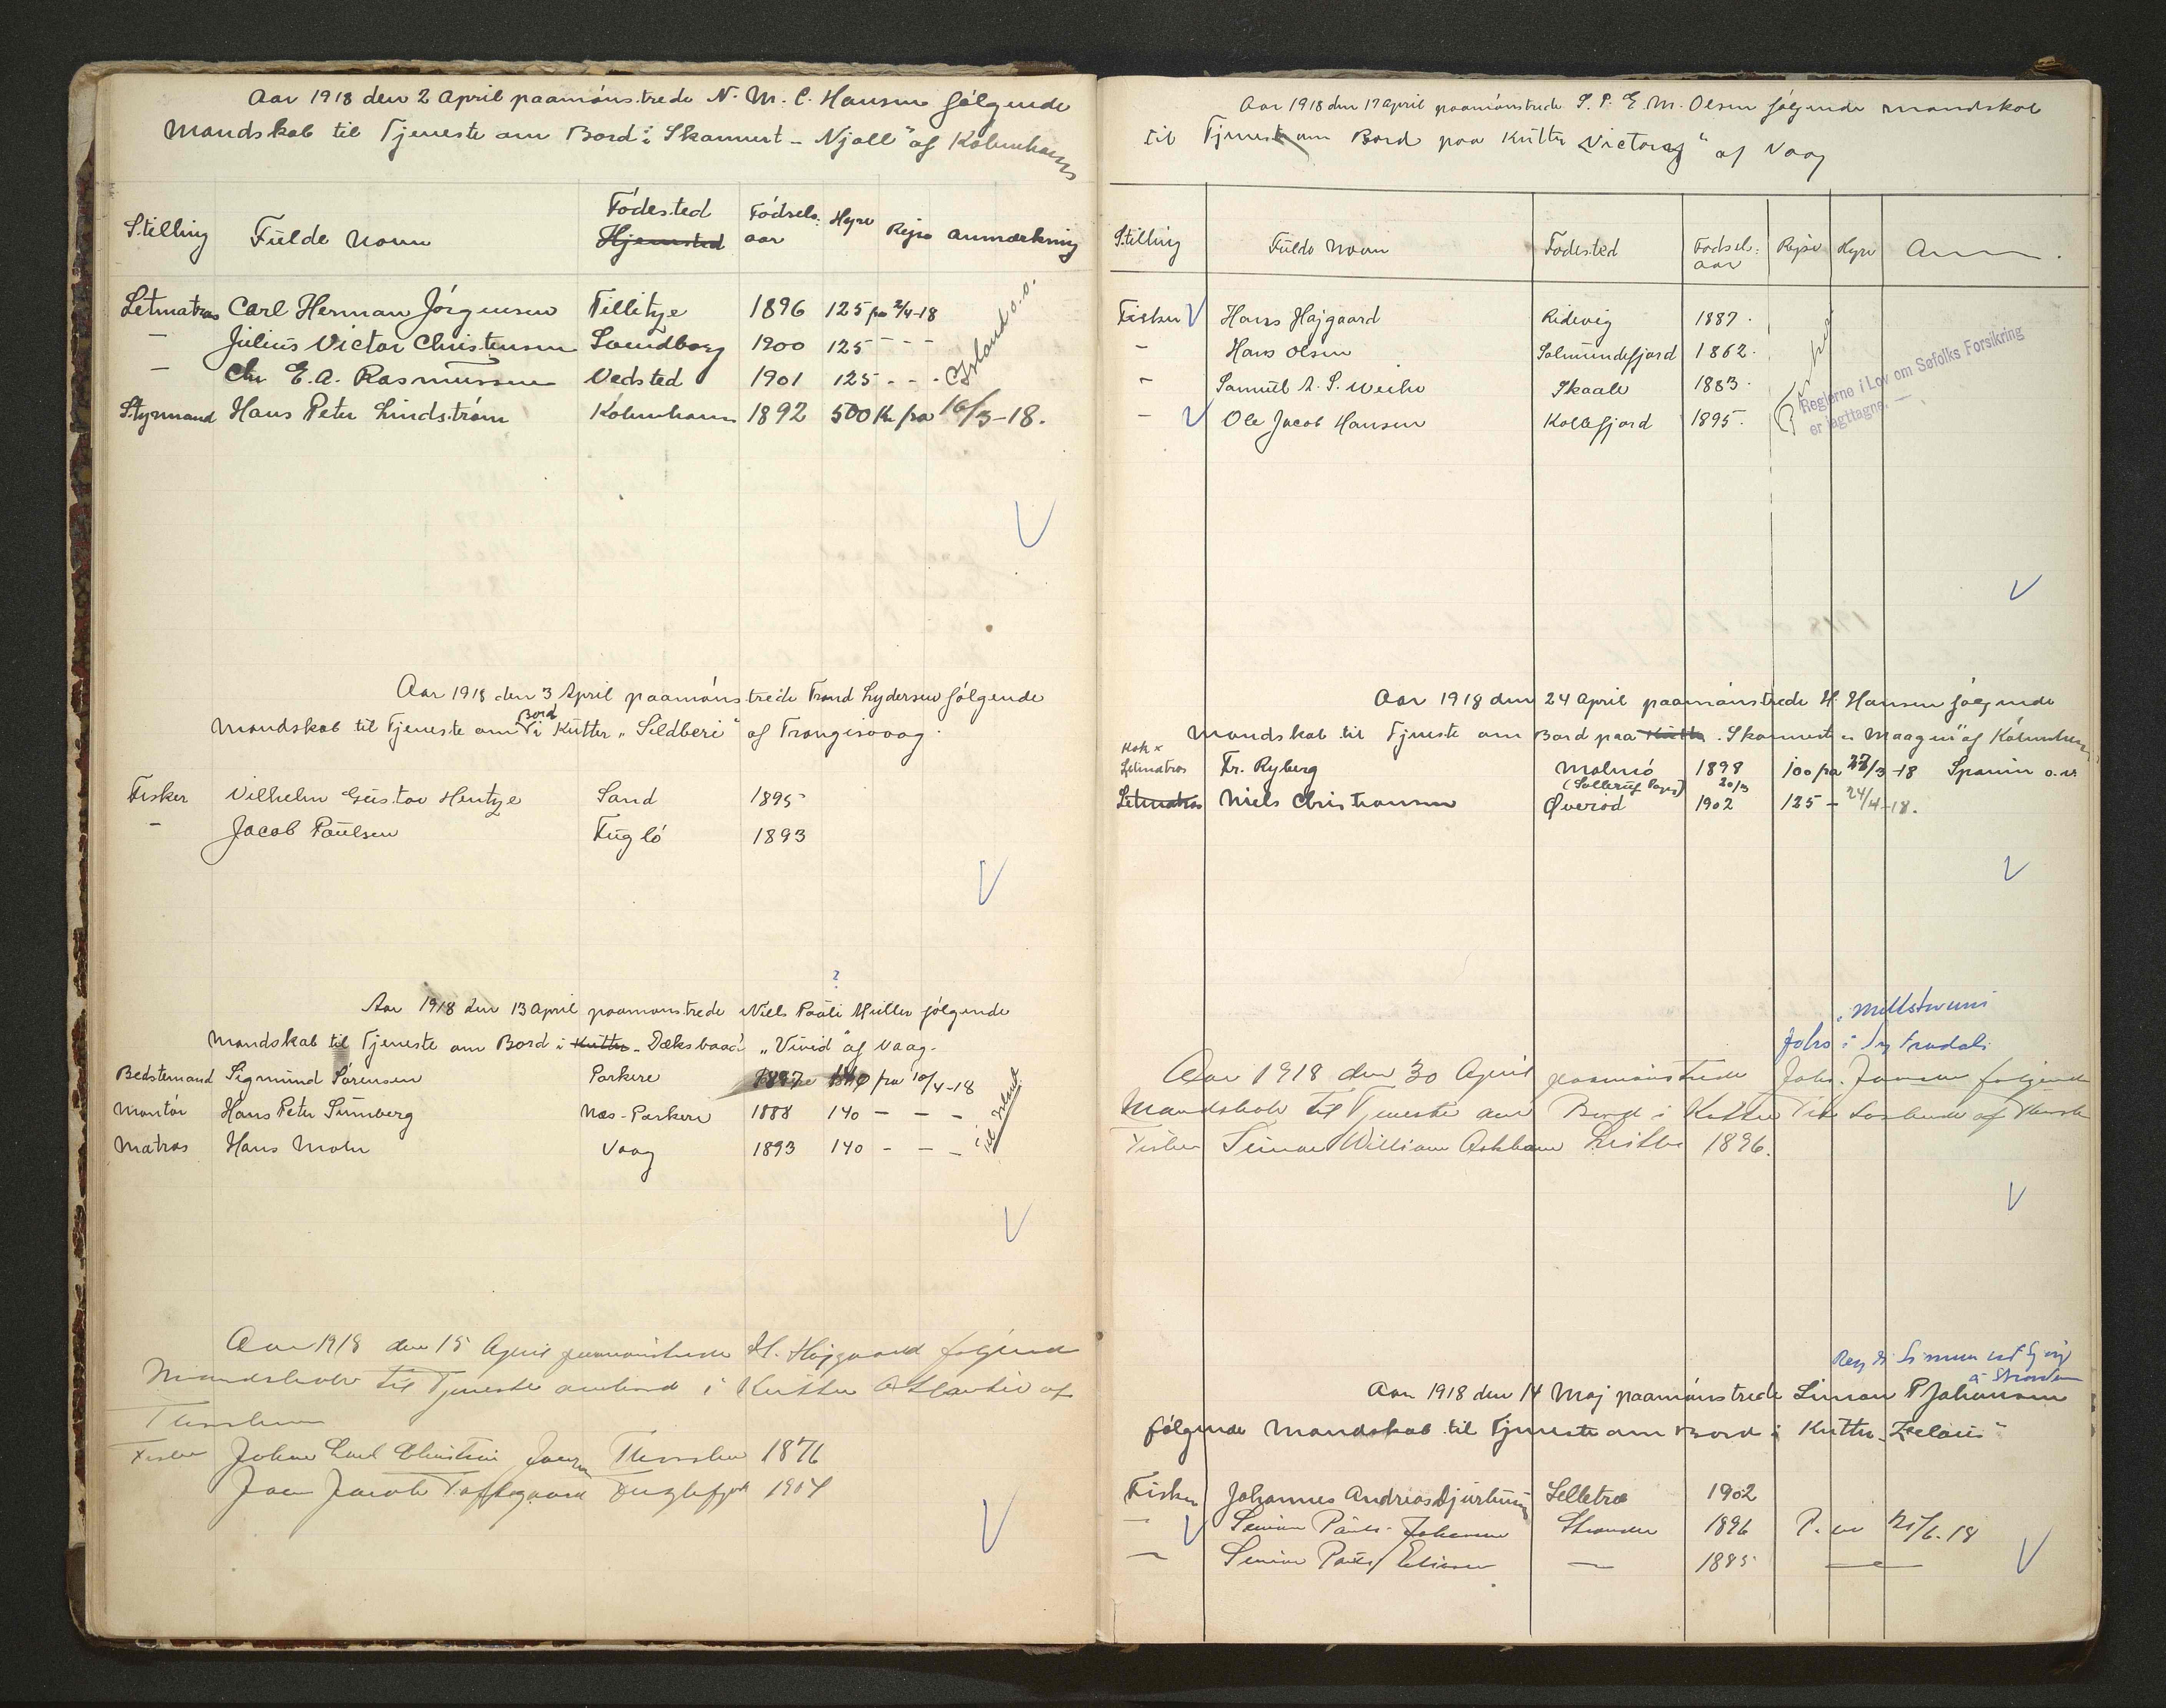 Aar 1918 den 2 April paamónstrede N. M. C. Hansen fólgende
Mandskab til Tjeneste om Bord i Skonnert „Njall" af Kóbenhavn
Stilling Fulde Navn Fódested Fódsels: aar Hyre Rejse Anmærkning
Hjemsted
Letmatros Carl Herman Jórgensen Tillitze 1896 125 fra 2/4-18
— Julius Victor Christensen Svendborg 1900 125 - - -
— Chr E. A. Rasmussen Vedsted 1901 125 - - -
Island o.o.
Styrmand Hans Peter Lindstróm Kóbenhavn 1892 500 Kr fra 16/3-18.
Aar 1918 den 3 April paamónstrede Trond Lydersen fólgende
Mandskab til Tjeneste om Bord i Kutter „Sildberi" af Trongisvaag.
Fisker Vilhelm Gustav Hentze Sand 1895
— Jacob Paulsen Fugló 1893
?
Aar 1918 den 13 April paamonstrede Niels Pauli Müller fólgende
Mandskab til Tjeneste om Bord i Kutter Dæksbaad „Vivid" af Vaag.
Bedstemand Sigmund Sórensen Porkere 1897 fra 10/4-18
Montór Hans Peter Sumberg Næs-Porkere 1888 140 — — —
Matros Hans Mohr Vaag 1893 140 - - -
til Island
Aar 1918 den 15 April paamónstrede H. Hójgaard fólgend
Mandskab til Tjeneste ombord i Kutter Atlantic af
Thorshavn
Fisker Johan Carl Christian Thorshavn 1876
Jacob Toftegaard Fuglefjord 1904
Aar 1918 den 17 April paamónstrede S. P. E. M. Olsen fólgende Mandskab
til Tjeneste om Bord paa Kutter „Victory" af Vaag
Stilling Fulde Navn Fódested Fódsels: aar Rejse Hyre Anm.
Fisker Hans Hójgaard Ridevig 1887.
— Hans Olsen Salmundefjord 1862.
— Samuel A. S. Weihe Skaale 1883.
— Ole Jacob Hansen Kollefjord 1895.
Reglerne i Lov om Søfolks Forsikring
er iagttagne. —
Aar 1918 den 24 April paamónstrede H. Hansen fólgende
Mandskab til Tjeneste om Bord paa Kutter Skonnert „Maagen" af Kóbenhavn
Kok x
Letmatros Fr. Ryberg Malmó 1898 100 fra 22/3-18 Spanien o.v.
(Sólleród Sogn) 20/3
Letmatros Niels Christiansen Øveród 1902 125 — 24/4-18.
Aar 1918 den 30 April paamónstrede Johs. Jensen fólgende
Mandskab til Tjeneste om Bord i Kutter af Thorsh
Fisker Simon William Askham 1896.
Aar 1918 den 14 Maj paamónstrede Simon P Johansen
fólgende Mandskab til Tjeneste om Bord i Kutter „Zelous"
Fisker Johannes Andreas Djurhuus Selletræ 1902
— Simon Pauli Johansen Strander 1896 21/6.18
— Simon Pauli Eliasen — 1885 —